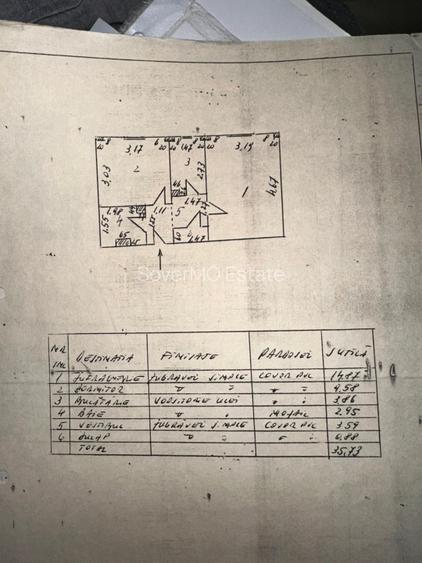 3,17
3,19
3
2,73
2
3,03
1
4,67
1,47
1,98
1,11
5
1,55
4
1,47
SoverMO Estate
NR
DESTINATIA FINISAJE PARDOSELI S UTILĂ
1 SUFRAGERIE ZUGRAVELI SIMPLE COVOR PVC 14,87
2 DORMITOR " " " " 9,58
3 BUCATARIE VOPSITORIE ULEI " " 3,86
4 BAIE " " MOZAIC 2,95
5 VESTIBUL ZUGRAVELI SIMPLE COVOR PVC 3,59
6 DULAP " " " " 0,88
TOTAL 35,73